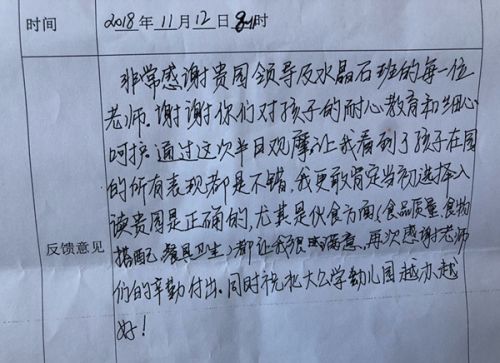 时间
2018年11月12日8时
非常感谢贵园领导及水晶石班的每一位
老师.谢谢你们对孩子的耐心教育和细心
呵护.通过这次半日观摩让我看到了孩子在园
的所有表现都是不错,我更敢肯定当初选择入
读贵园是正确的,尤其是伙食方面(食品质量,食物
反馈意见
搭配,餐具卫生)都让我很满意,再次感谢老师
们的辛勤付出.同时祝北大公学幼儿园越办越
好!